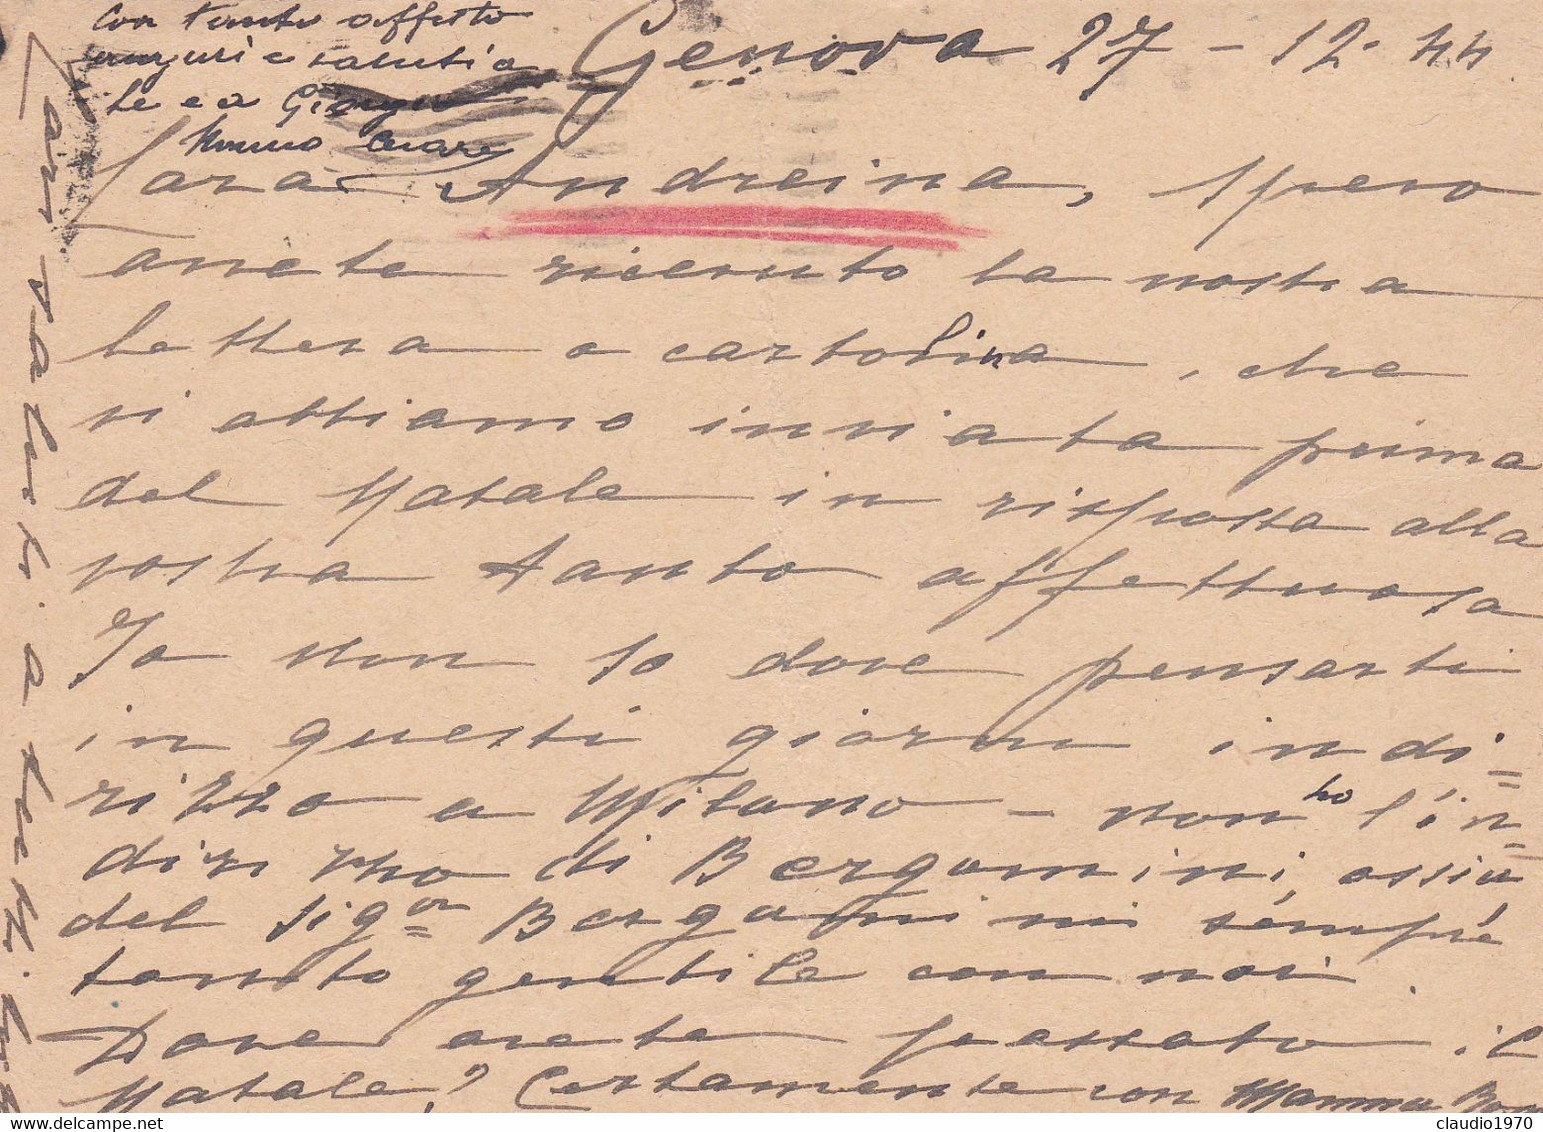 Con tanto affetto
auguri e saluti a
te e a Giorgio
Nonno Cesare
Genova 27 - 12 - 44
Cara Andreina, spero
avete ricevuto la nostra
lettera o cartolina, che
vi abbiamo inviata prima
del Natale in risposta alla
vostra tanto affettuosa
Io non so dove pensarti
in questi giorni indi=
rizzo a Milano - non ho l'in=
dirizzo di Bergamini, ossia
del Sigor Bergamini sempre
tanto gentile con noi.
Dove avete passato il
Natale? Certamente con Mamma
Cari saluti a te e
claudio1970